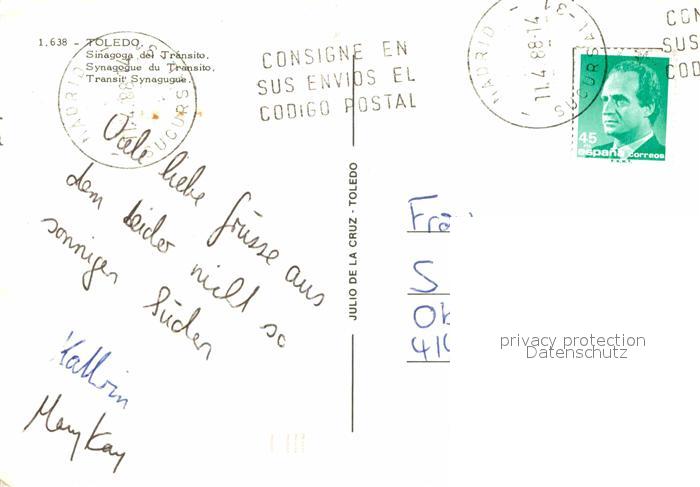 1.638 - TOLEDO.
Sinagoga del Tránsito.
Synagogue du Transito.
Transit Synagugue.
MADRID
SUCURS
CONSIGNE EN
SUS ENVIOS EL
CODIGO POSTAL
MADRID
11.4.88-14
SUCURSAL-31
CON
SUS
COD
45
españa correos
Viele liebe Grüsse aus
dem leider nicht so
sonnigen Süden
Kathrin
Mary Kay
JULIO DE LA CRUZ - TOLEDO
S
privacy protection
Datenschutz